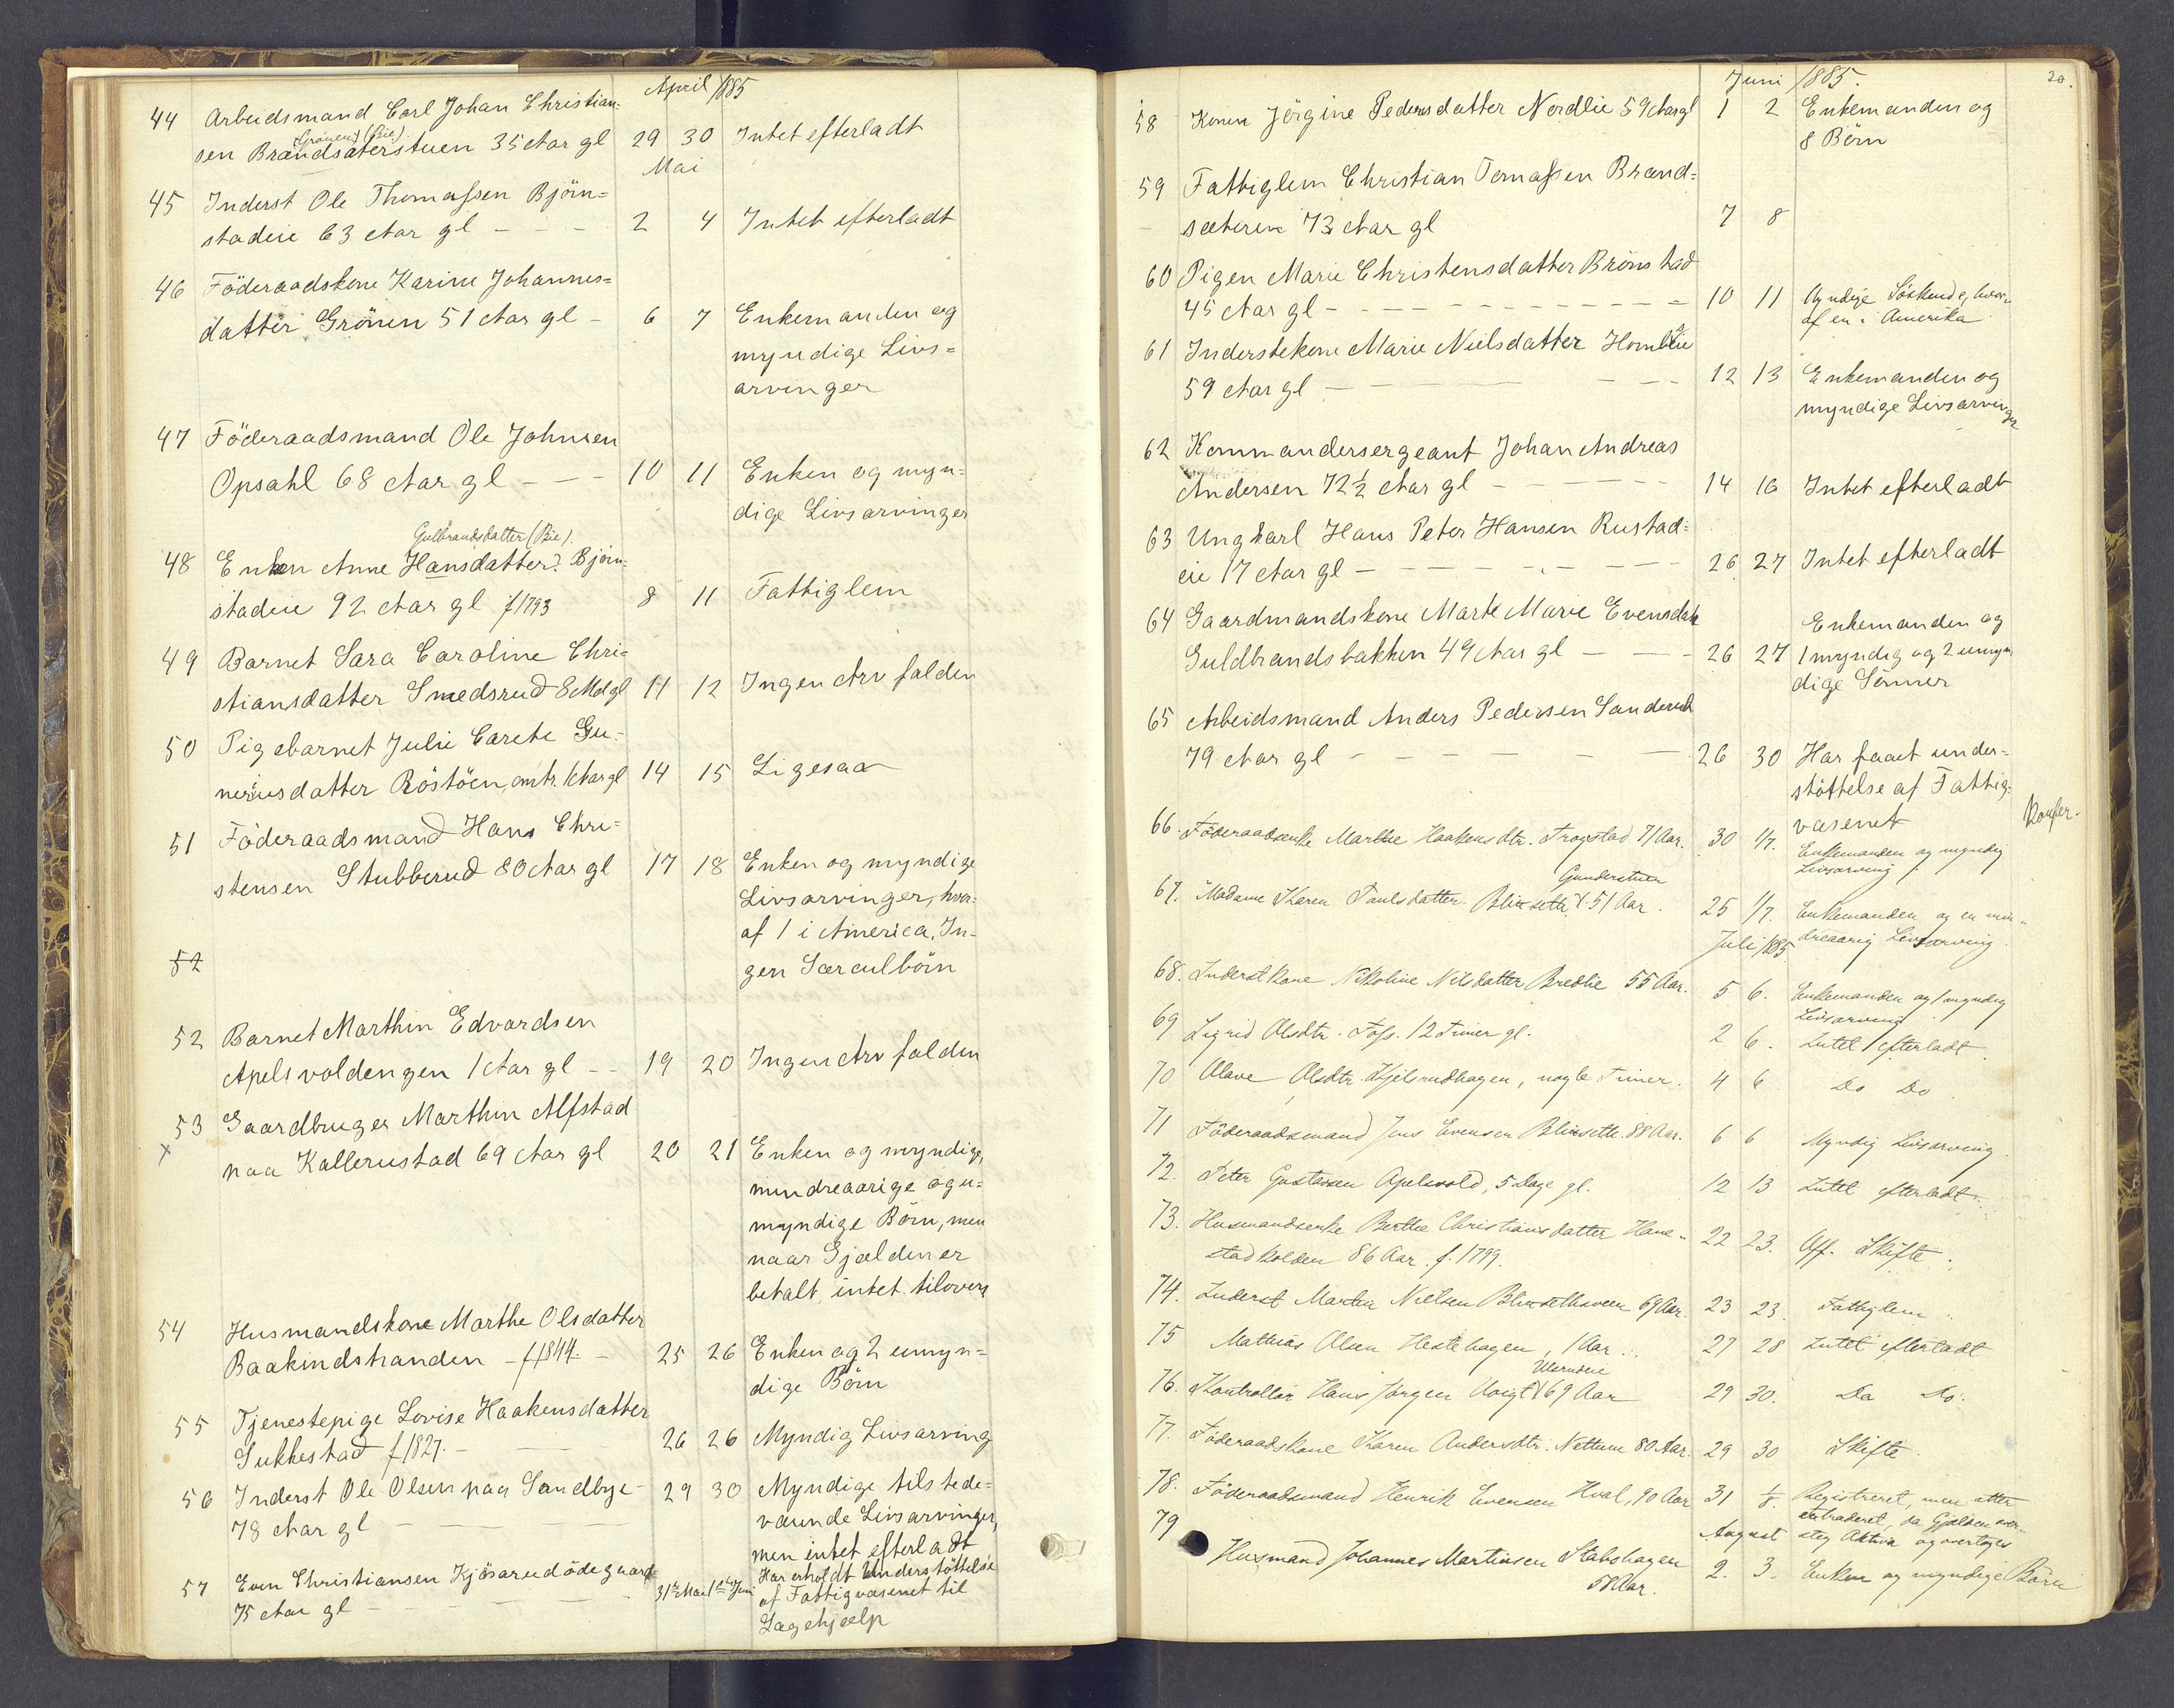 April 1885
44 Arbeidsmand Carl Johan Christian-
(Grönen) (Bie)
sen Brandsæterstuen 35 Aar gl 29 30 Intet efterladt
Mai
45 Inderst Ole Thomassen Björn-
stadeie 63 Aar gl - - - 2 4 Intet efterladt
46 Föderaadskone Karine Johannes-
datter Grönen 51 Aar gl - 6 7 Enkemanden og
myndige Livs-
arvinger
47 Föderaadsmand Ole Johnsen
Opsahl 68 Aar gl - - - 10 11 Enken og myn-
dige Livsarvinger
Gulbrandsdatter (Bie).
48 Enken Anne Hansdatter? Björn-
stadeie 92 Aar gl f 1793 8 11 Fattiglem
49 Barnet Sara Caroline Chri-
stiansdatter Smedsrud 8 Md gl 11 12 Ingen Arv falden
50 Pigebarnet Julie Carete Gu-
neriusdatter Röstöen, omtr. 1 Aar gl 14 15 Ligesaa
51 Föderaadsmand Hans Chri-
stensen Stubberud 80 Aar gl 17 18 Enken og myndige
Livsarvinger, hvor-
af 1 i America. In-
52
gen Særculbörn
52 Barnet Marthin Edvardsen
Apelsvoldengen 1 Aar gl - - 19 20 Ingen Arv falden
53 Gaardbruger Marthin Alfstad
x paa Kallerustad 69 Aar gl 20 21 Enken og myndige,
mindreaarige og u-
myndige Börn, men
naar Gjælden er
betalt, intet tilovers
54 Husmandskone Marthe Olsdatter
Baakindstranden - f 1844. - 25 26 Enken og 2 umyn-
dige Börn
55 Tjenestepige Lovise Haakensdatter
Sukkestad f 1827. - 26 26 Myndig Livsarving
56 Inderst Ole Olsen paa Sandbye- 29 30 Myndige tilstede-
78 Aar gl - - - værende Livsarvinger,
men intet efterladt
57 Even Christiansen Kjösarudödegaard 31te Mai 1ste Juni Har erholdt Understöttelse
75 Aar gl - - - af Fattigvæsenet til
Lægehjælp
Juni 1885. 20.
58 Konen Jörgine Pedersdatter Nordlie 59 Aar gl 1 2 Enkemanden og
8 Börn
59 Fattiglem Christian Tomassen Brand-
sæteren 73 Aar gl 7 8
60 Pigen Marie Christensdatter Brönstad
45 Aar gl - - - 10 11 Myndige Söskende, hvor-
af en i Amerika
61 Inderstekone Marie Nielsdatter Homblie
59 Aar gl - - - 12 13 Enkemanden og
myndige Livsarvinger
62 Kommandersergeant Johan Andreas
Andersen 72½ Aar gl - - - 14 16 Intet efterladt
63 Ungkarl Hans Peter Hansen Rustad-
eie 17 Aar gl - - - 26 27 Intet efterladt
64 Gaardmandskone Marte Marie Evensdatt Enkemanden og
Guldbrandsbakken 49 Aar gl - - - 26 27 1 myndig og 2 umyn-
dige Sönner
65 Arbeidsmand Anders Pedersen Sanderud
79 Aar gl - - - 26 30 Har faaet under-
stöttelse af Fattig-
væsenet
66. Föderaadsenke Marthe Haakensdtr. Trogstad 71 Aar. 30 1/7. Enkemanden og myndig
Livsarving
Gunderstuen
67. Madame Karen Paulsdatter Blixseth, 51 Aar. 25 1/7. Enkemanden og en min-
dreaarig Livsarving.
Juli 1885
68. Inderstkone Nikoline Nilsdatter Bredlie 55 Aar. 5 6. Enkemanden og 1 myndig
Livsarving
69 Sigrid Olsdtr. Foss. 12 Timer gl. 2 6. Intet efterladt.
70 Olave Olsdtr. Kjelsrudhagen, nogle Timer. 4 6 Do Do.
71 Föderaadsmand Jens Evensen Blixseth. 88 Aar. 6 6 Myndig Livsarving.
72. Peter Gustavsen Apelsvold, 5 Dage gl. 12 13 Intet efterladt.
73. Husmandsenke Berthe Christiansdatter Hane-
stadkolden 86 Aar. f. 1799. 22 23. Aff. Skifte.
74. Inderst Martin Nielsen Blixsethsveen 69 Aar. 23 23. Fattiglem.
75 Mathias Olsen Hestehagen, 1 Aar. 27 28 Intet efterladt
76. Kontrollör Hans Jørgen Voigt 69 Aar 29 30. Do Do.
77. Föderaadskone Karen Andersdtr. Nettum 80 Aar. 29 30 Skifte
78. Föderaadsmand Henrik Evensen Hval, 90 Aar 31 1/8. Registreret, men atter
extraderet, da Gjælden over-
steg Aktiva og overtoges
August
79 Husmand Johannes Martinsen Stabshagen 2. 3. Enken og myndige Börn
58 Aar.